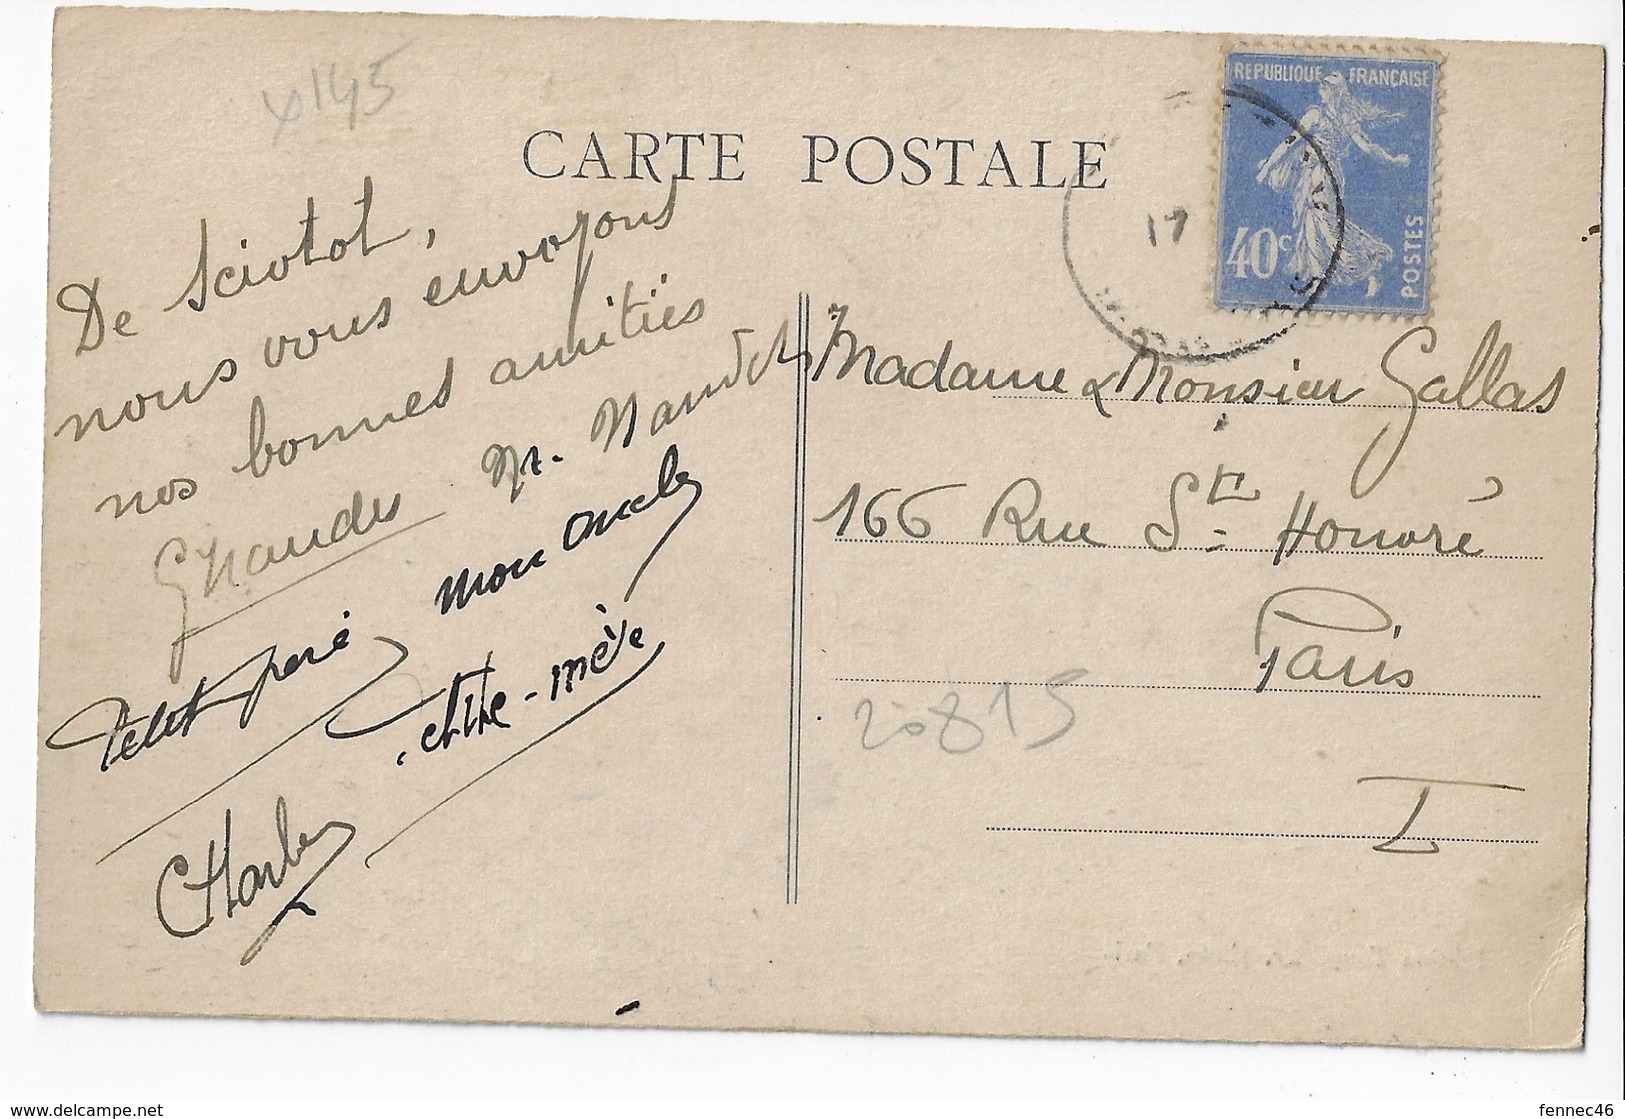 x145
CARTE POSTALE
REPUBLIQUE FRANÇAISE
40c
POSTES
17
De Sciotot,
nous vous envoyons
nos bonnes amitiés
Mr.
mon oncle
Petit père
-mère
Charles
Madame & Monsieur Gallas
166 Rue St Honoré
Paris
I
20815
www.delcampe.net
fennec46